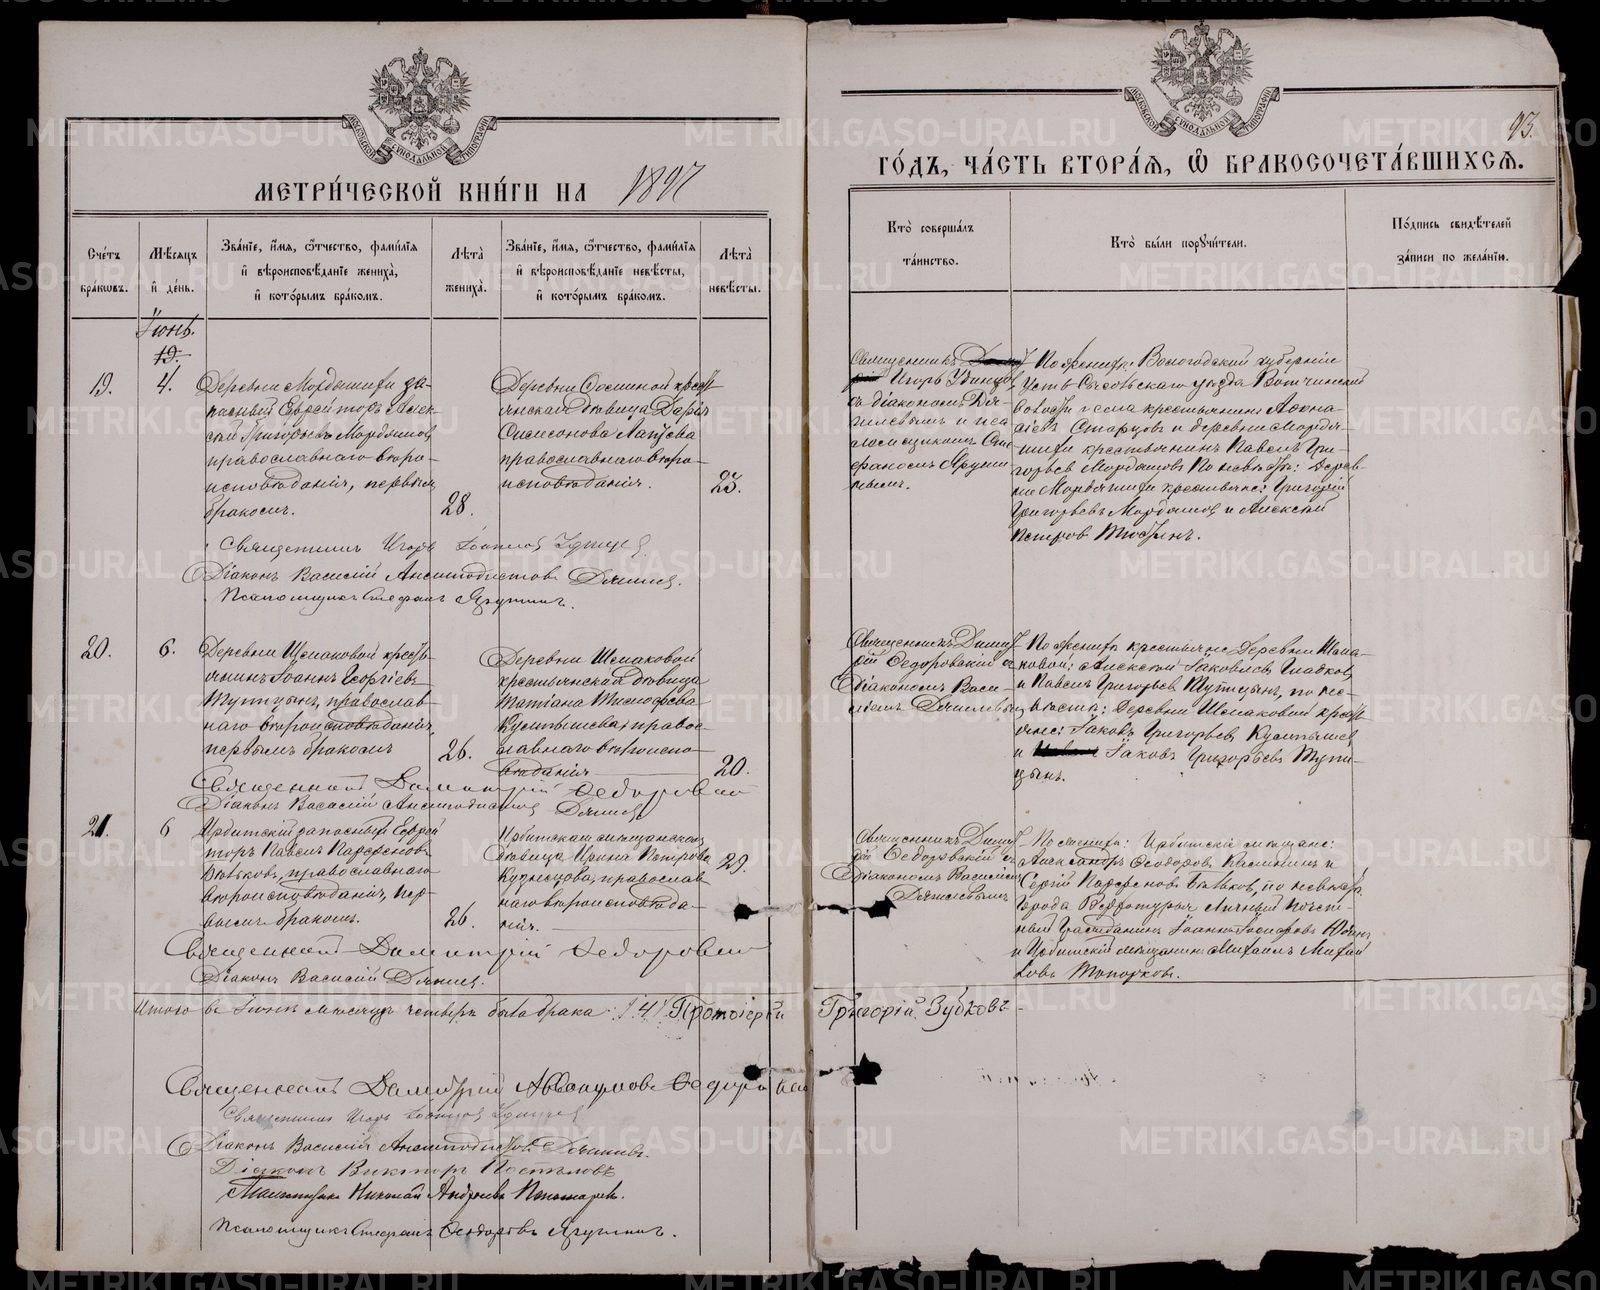 МЕТРИ́ЧЕСКОЙ КНИ́ГИ НА 1897
ГО́ДЪ, ЧА́СТЬ ВТОРА́Я, Ѿ БРАКОСОЧЕТА́ВШИХСЯ.
93.
Сче́тъ бра́кѡвъ.
Мѣ́сяцъ и҆ де́нь.
Зва́нїе, и҆́мя, ѻ҆́тчество, фами́лїя
и҆ вѣроисповѣ́данїе жениха̀,
и҆ кото́рымъ бра́комъ.
Лѣта̀ жениха̀.
Зва́нїе, и҆́мя, ѻ҆́тчество, фами́лїя
и҆ вѣроисповѣ́данїе невѣ́сты,
и҆ кото́рымъ бра́комъ.
Лѣта̀ невѣ́сты.
Кто̀ соверша́лъ
та́инство.
Кто̀ бы́ли порꙋчи́тели.
По́дпись свидѣ́телей
за́писи по жела́нїю.
Іюнь.
19.
19.
4.
Деревни Мордяшихи за-
пасный Ефрейторъ Алек-
сѣй Григорьевъ Мордяшов
православнаго вѣро-
исповѣданія, первымъ
бракомъ.
28.
Деревни Осминой крест
янская дѣвица Дарія
Симеонова Лапуева
православнаго вѣро-
исповѣданія.
23.
Священникъ
Игорь Удинцов
съ діакономъ Дя-
гилевымъ и пса-
ломщикомъ Сте
фаномъ Яруши-
нымъ.
По женихѣ: Вологодской губерніи
Усть-Сысольскаго уѣзда Вотчинской
волости и села крестьянинъ Афана-
сій Старцов и деревни Мордя-
шихи крестьянинъ Павелъ Гри-
горьев Мордяшов. По невѣстѣ: Дерев-
ни Мордяшихи крестьяне: Григорій
Григорьевъ Мордяшов и Алексѣй
Петров
Священникъ Игорь Іоаннов Удинцев.
Діаконъ Василій Анемподистовъ Дягилев.
Псаломщикъ Стефанъ Ярушинъ.
20.
6.
Деревни Шмаковой кресть-
янинъ Іоаннъ Георгіев
Тупицынъ, православ-
наго вѣроисповѣданія,
первымъ бракомъ
26.
Деревни Шмаковой
крестьянская дѣвица
Татіана Тимофеева
Култышева, правос-
лавнаго вѣроиспо-
вѣданія
20.
Священникъ Димит
рій Федоровскій съ
Діакономъ Васи-
ліемъ Дягилевым
По женихѣ крестьяне Деревни Шма-
ковой: Алексѣй Іаковлев Гладков
и Павелъ Григорьев Тупицынъ, по не-
вѣстѣ: Деревни Шмаковой крест
яне: Іаковъ Григорьев Култышев
и Іаковъ Григорьев Тупи-
цынъ.
Священникъ Димитрій Федоровскій
Діаконъ Василій Анемподистов Дягилев
21.
6
Ирбитскій запасный Ефрей
торъ Павелъ Парфенов
Бѣлков, православнаго
вѣроисповѣданія, пер-
вымъ бракомъ.
26.
Ирбитская мѣщанская
дѣвица Ирина Петрова
Кузнецова, православ
наго вѣроисповѣда-
нія.
29.
Священникъ Димит
рій Федоровскій съ
Діакономъ Василіем
Дягилевымъ
По женихѣ: Ирбитскіе мѣщане:
Александръ Феодоров Калинин и
Сергій Парфенов Бѣлков, по невѣстѣ:
Города Верхотурья Личный Почет-
ный Гражданинъ Іоанн
и Ирбитскій мѣщанинъ Михаилъ Михай
ловъ Топорков.
Священникъ Димитрій Федоровскій
Діаконъ Василій Дягилев.
Итого въ Іюнѣ мѣсяцѣ четыре было брака /4/ Протоіерей Григорій Зубковъ
Священникъ Димитрій Аввакумовъ Федоровский
Священникъ Игорь Іоаннов Удинцев
Діаконъ Василій Анемподистов Дягилевъ.
Діаконъ Викторъ Постѣловъ
Псаломщикъ Николай Андреевъ Пономарев.
Псаломщикъ Стефанъ Феодоровъ Ярушинъ.
METRIKI.GASO-URAL.RU